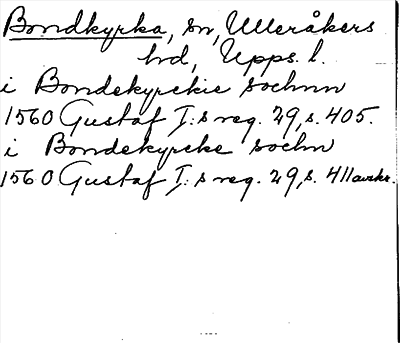 Bondkyrka, sn, Ulleråkers
hd, Upps. l.
i Bondekyrckie sochnn
1560 Gustaf I:s reg. 29, s. 405.
i Bondekyrcke sochn
1560 Gustaf I:s reg. 29, s. 411 avskr.